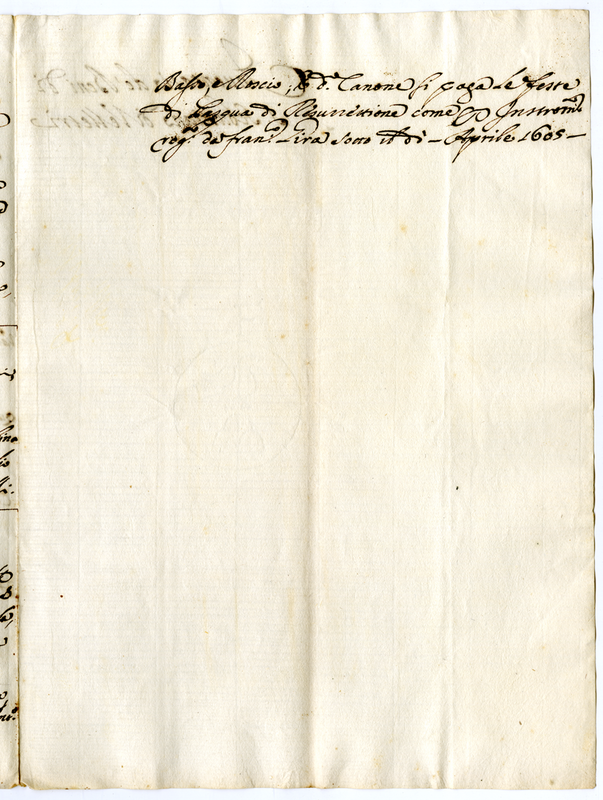 Basso, e Moscio, & d.º Canone si paga le feste
di Pasqua di Resurrettione come p Instrom.º
rog.º da Fran.º Lira sotto il dì - Aprile 1605 -